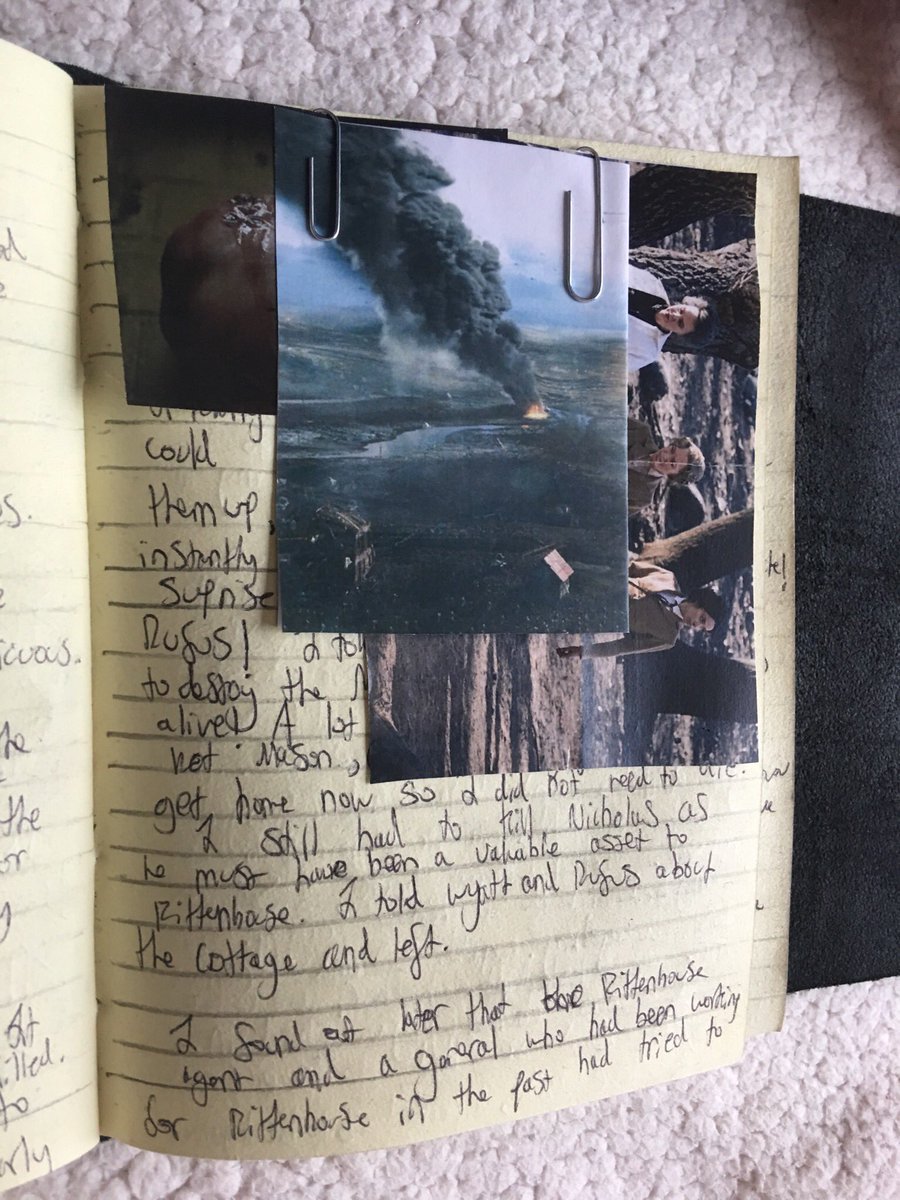 ad
s.
icuous.
the
the
or
y
At
illed.
to
arly
could
them up,
instantly
Suprise
Rufus! I to
to destroy the
alive! A lot
not Mason,
get home now so I did not need to die.
I still had to kill Nicholas as
he must have been a valuable asset to
Rittenhouse. I told Wyatt and Rufus about
the cottage and left.
I found out later that Rittenhouse
agent and a general who had been working
for Rittenhouse in the past had tried to